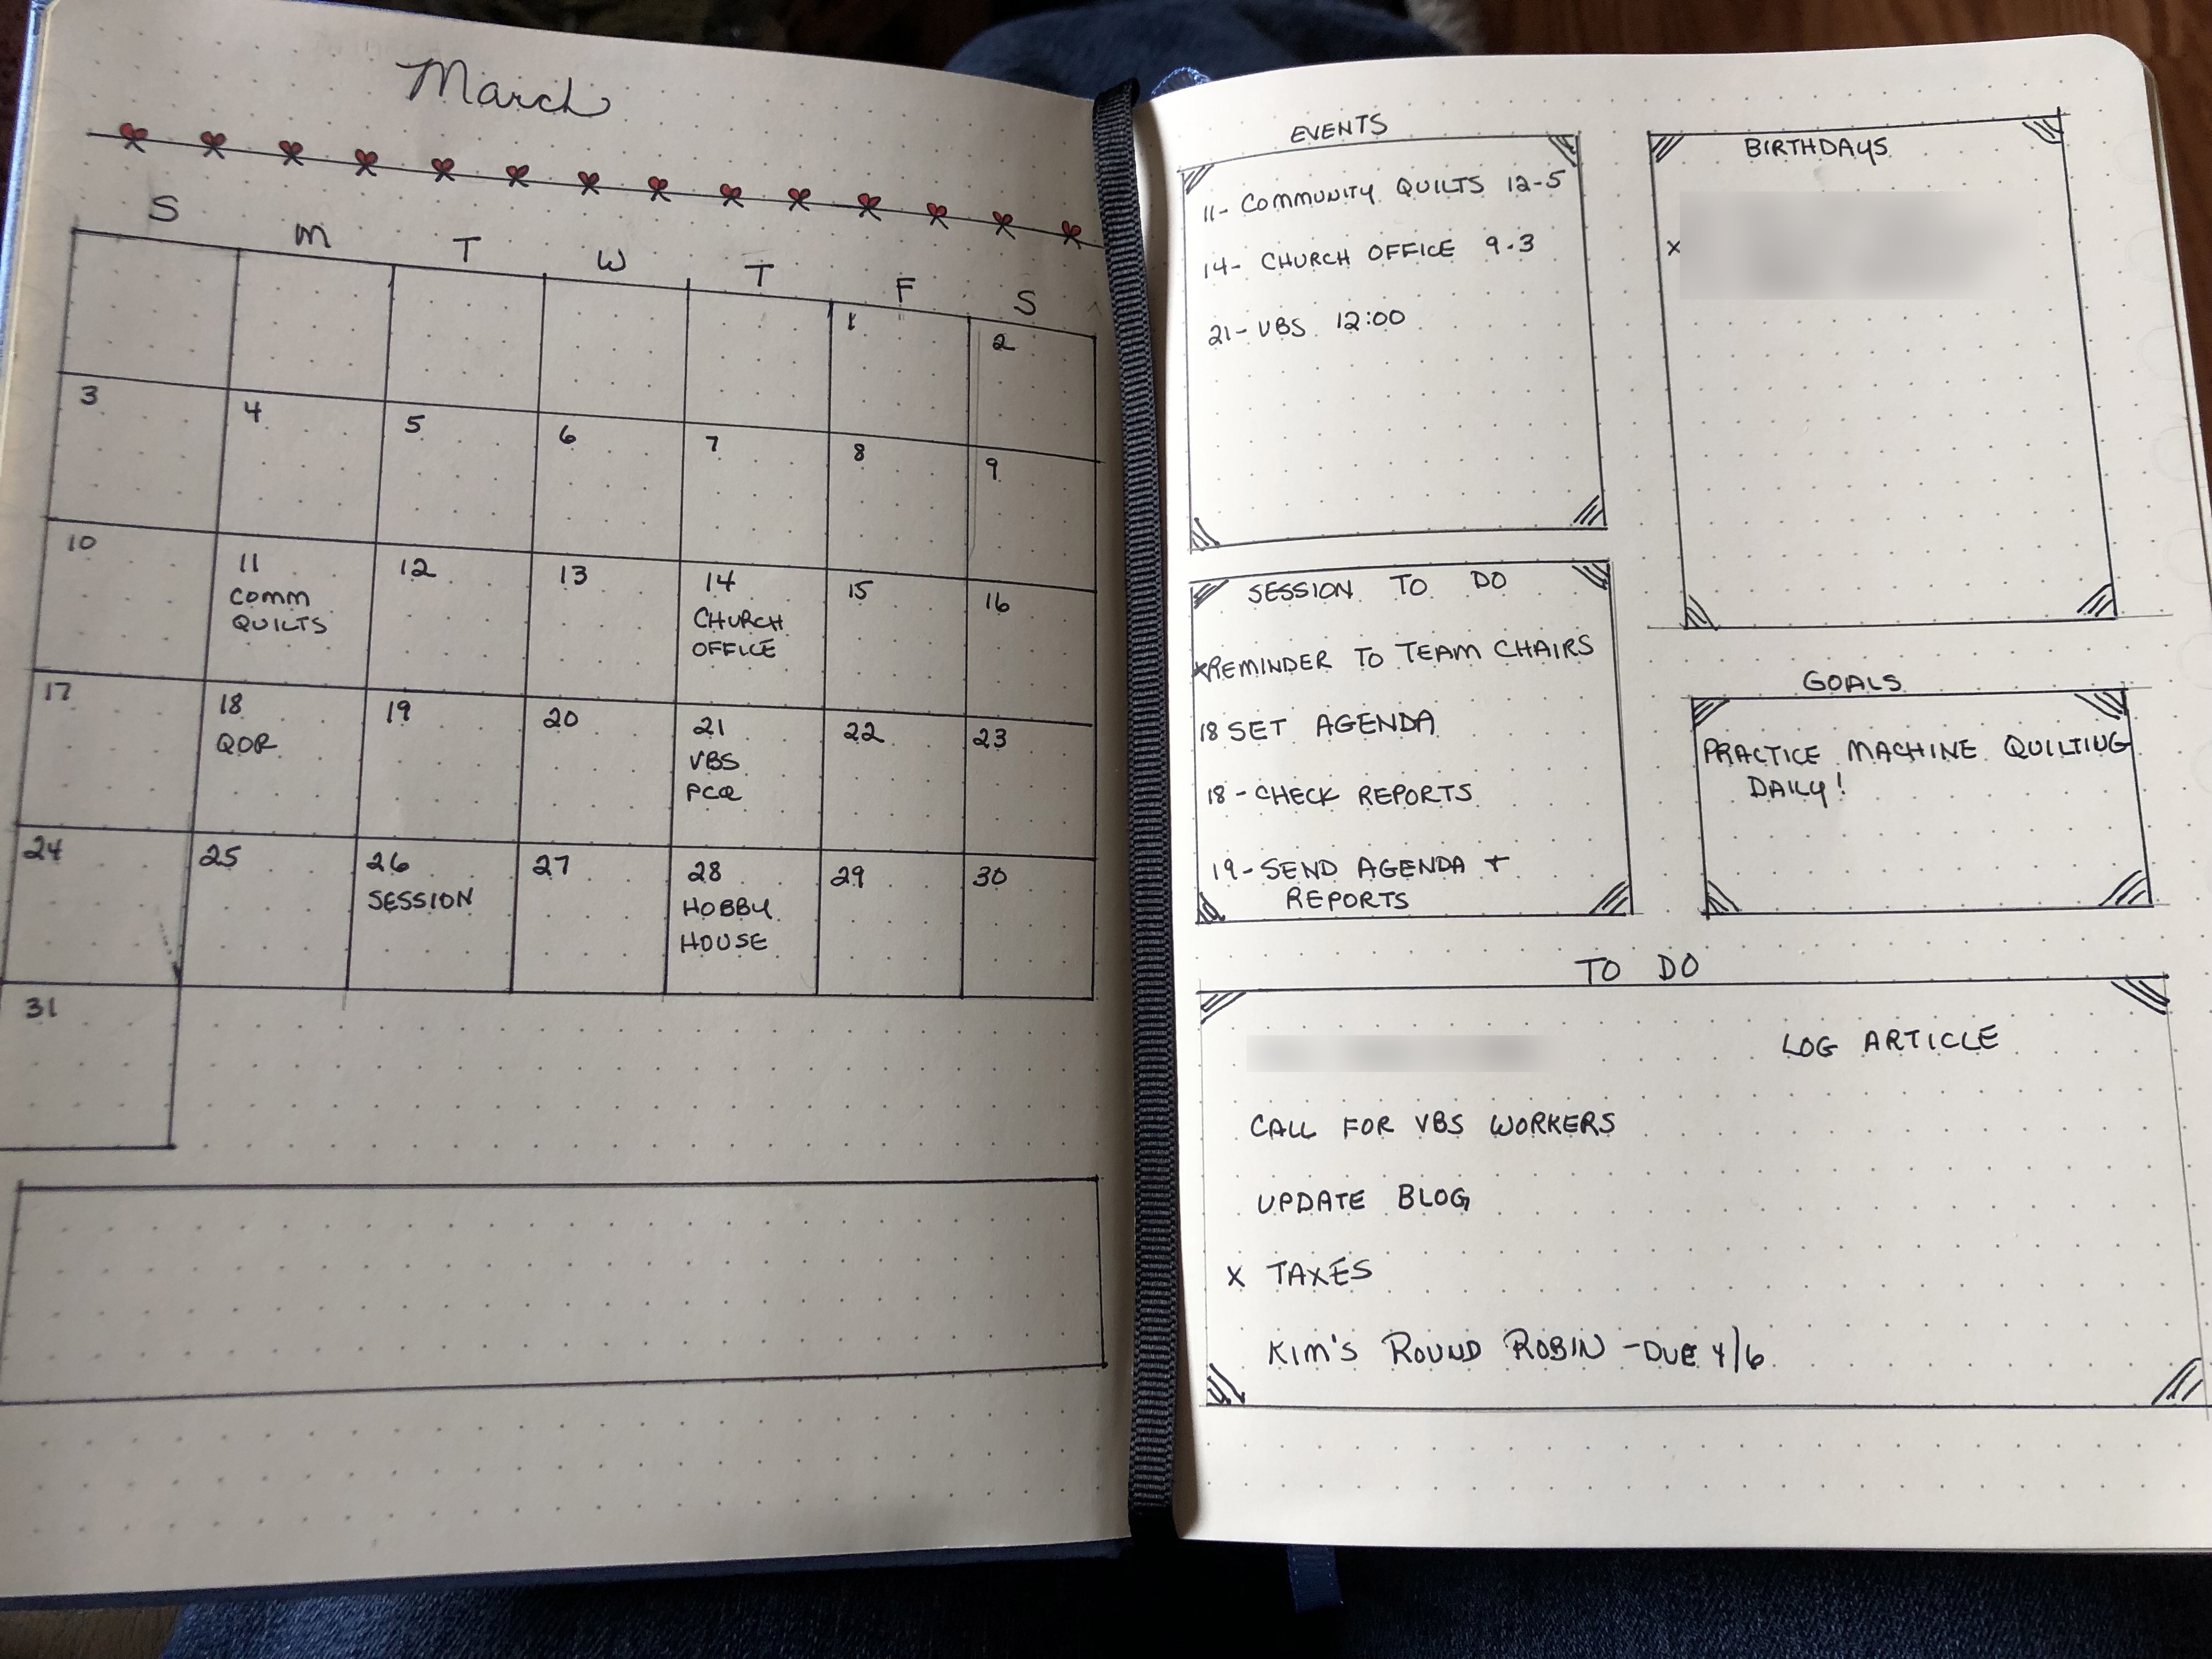 March
S M T W T F S
1 2
3 4 5 6 7 8 9
10 11 12 13 14 15 16
COMM CHURCH
QUILTS OFFICE
17 18 19 20 21 22 23
QOR VBS
PCQ
24 25 26 27 28 29 30
SESSION HOBBY
HOUSE
31
EVENTS
11- COMMUNITY QUILTS 12-5
14- CHURCH OFFICE 9-3
21- VBS 12:00
BIRTHDAYS
x
SESSION TO DO
xREMINDER TO TEAM CHAIRS
18 SET AGENDA
18 - CHECK REPORTS
19-SEND AGENDA +
REPORTS
GOALS
PRACTICE MACHINE QUILTING
DAILY!
TO DO
LOG ARTICLE
CALL FOR VBS WORKERS
UPDATE BLOG
X TAXES
KIM'S ROUND ROBIN - DUE 4/6